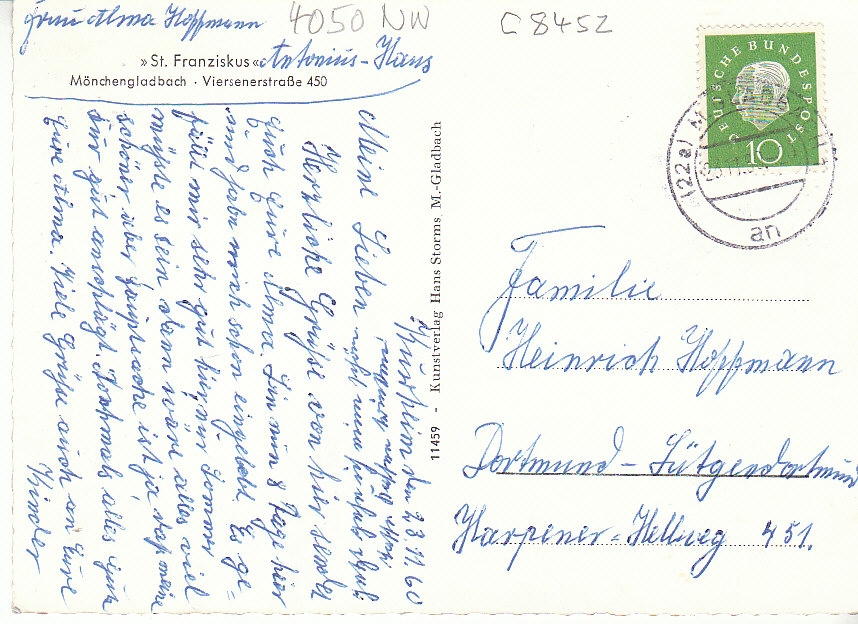 Frau Alma Hoffmann
4050 NW
C 8452
»St. Franziskus« Antonius-Haus
Mönchengladbach · Viersenerstraße 450
DEUTSCHE BUNDESPOST
10
(22a) M
an
den 23.11.60
Meine Lieben
Herzliche Grüße von hier sendet
Euch Eure Alma. Bin nun 8 Tage hier
und habe mich schon eingelebt. Es ge-
fällt mir sehr gut hier, nur Sommer
müßte es sein dann wäre alles viel
schöner, aber Hauptsache ist ja daß meine
Kur gut anschlägt. Nochmals alles Gute
Eure Alma. Viele Grüße auch an Eure
Kinder
11459 - Kunstverlag Hans Storms, M.-Gladbach
Familie
Heinrich Hoffmann
Dortmund-Lütgendortmund
Harpener-Hellweg 451.